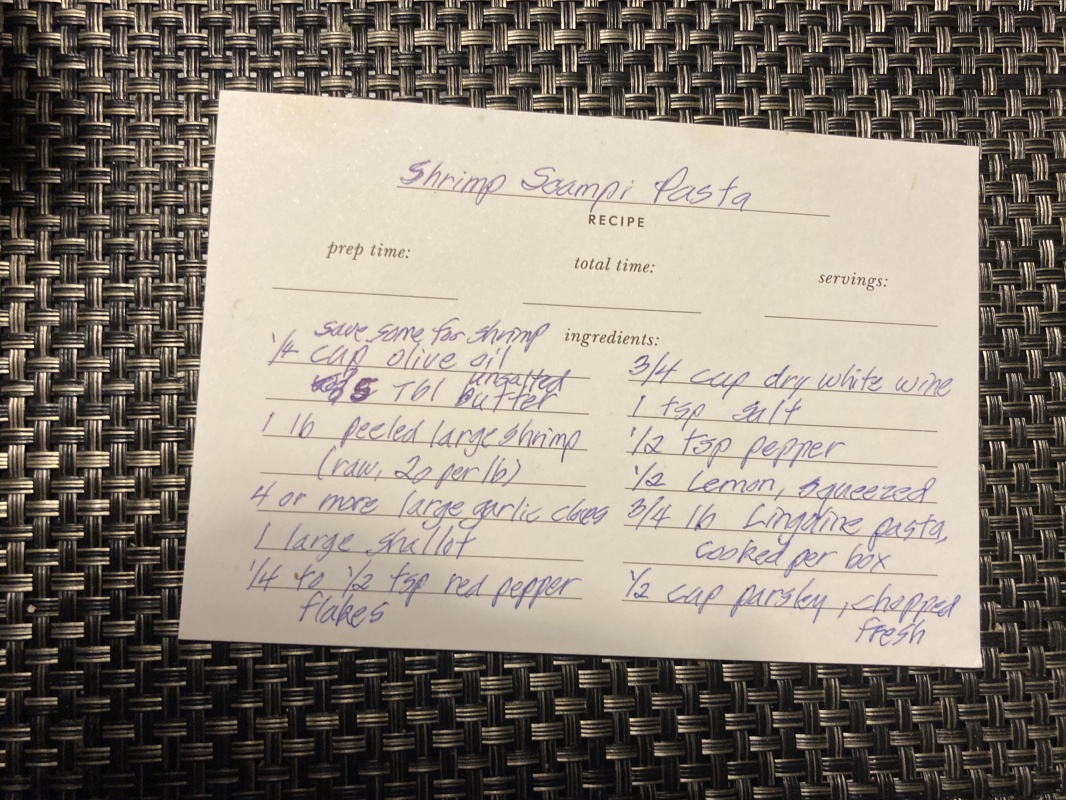 Shrimp Scampi Pasta
RECIPE
prep time:
total time:
servings:
ingredients:
save some for shrimp
1/4 cup olive oil
5 Tbl unsalted butter
1 lb peeled large shrimp
(raw, 20 per lb)
4 or more large garlic cloves
1 large shallot
1/4 to 1/2 tsp red pepper
flakes
3/4 cup dry white wine
1 tsp salt
1/2 tsp pepper
1/2 Lemon, squeezed
3/4 lb Linguine pasta,
cooked per box
1/2 cup parsley, chopped
fresh